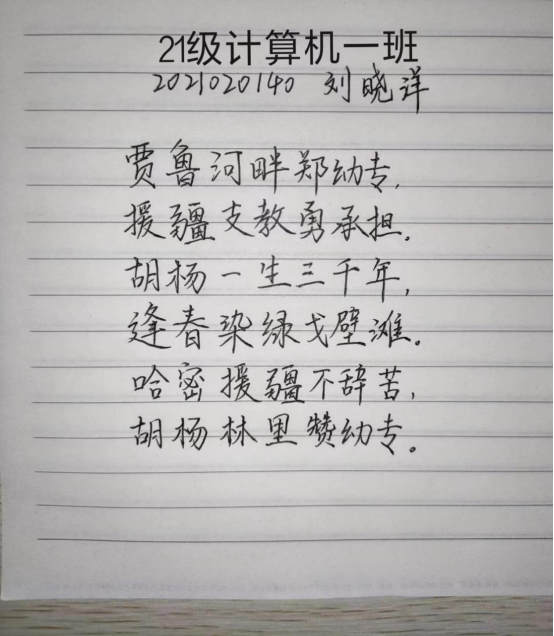 21级计算机一班
2021020140 刘晓洋
贾鲁河畔郑幼专,
援疆支教勇承担.
胡杨一生三千年,
逢春染绿戈壁滩.
哈密援疆不辞苦,
胡杨林里赞幼专。